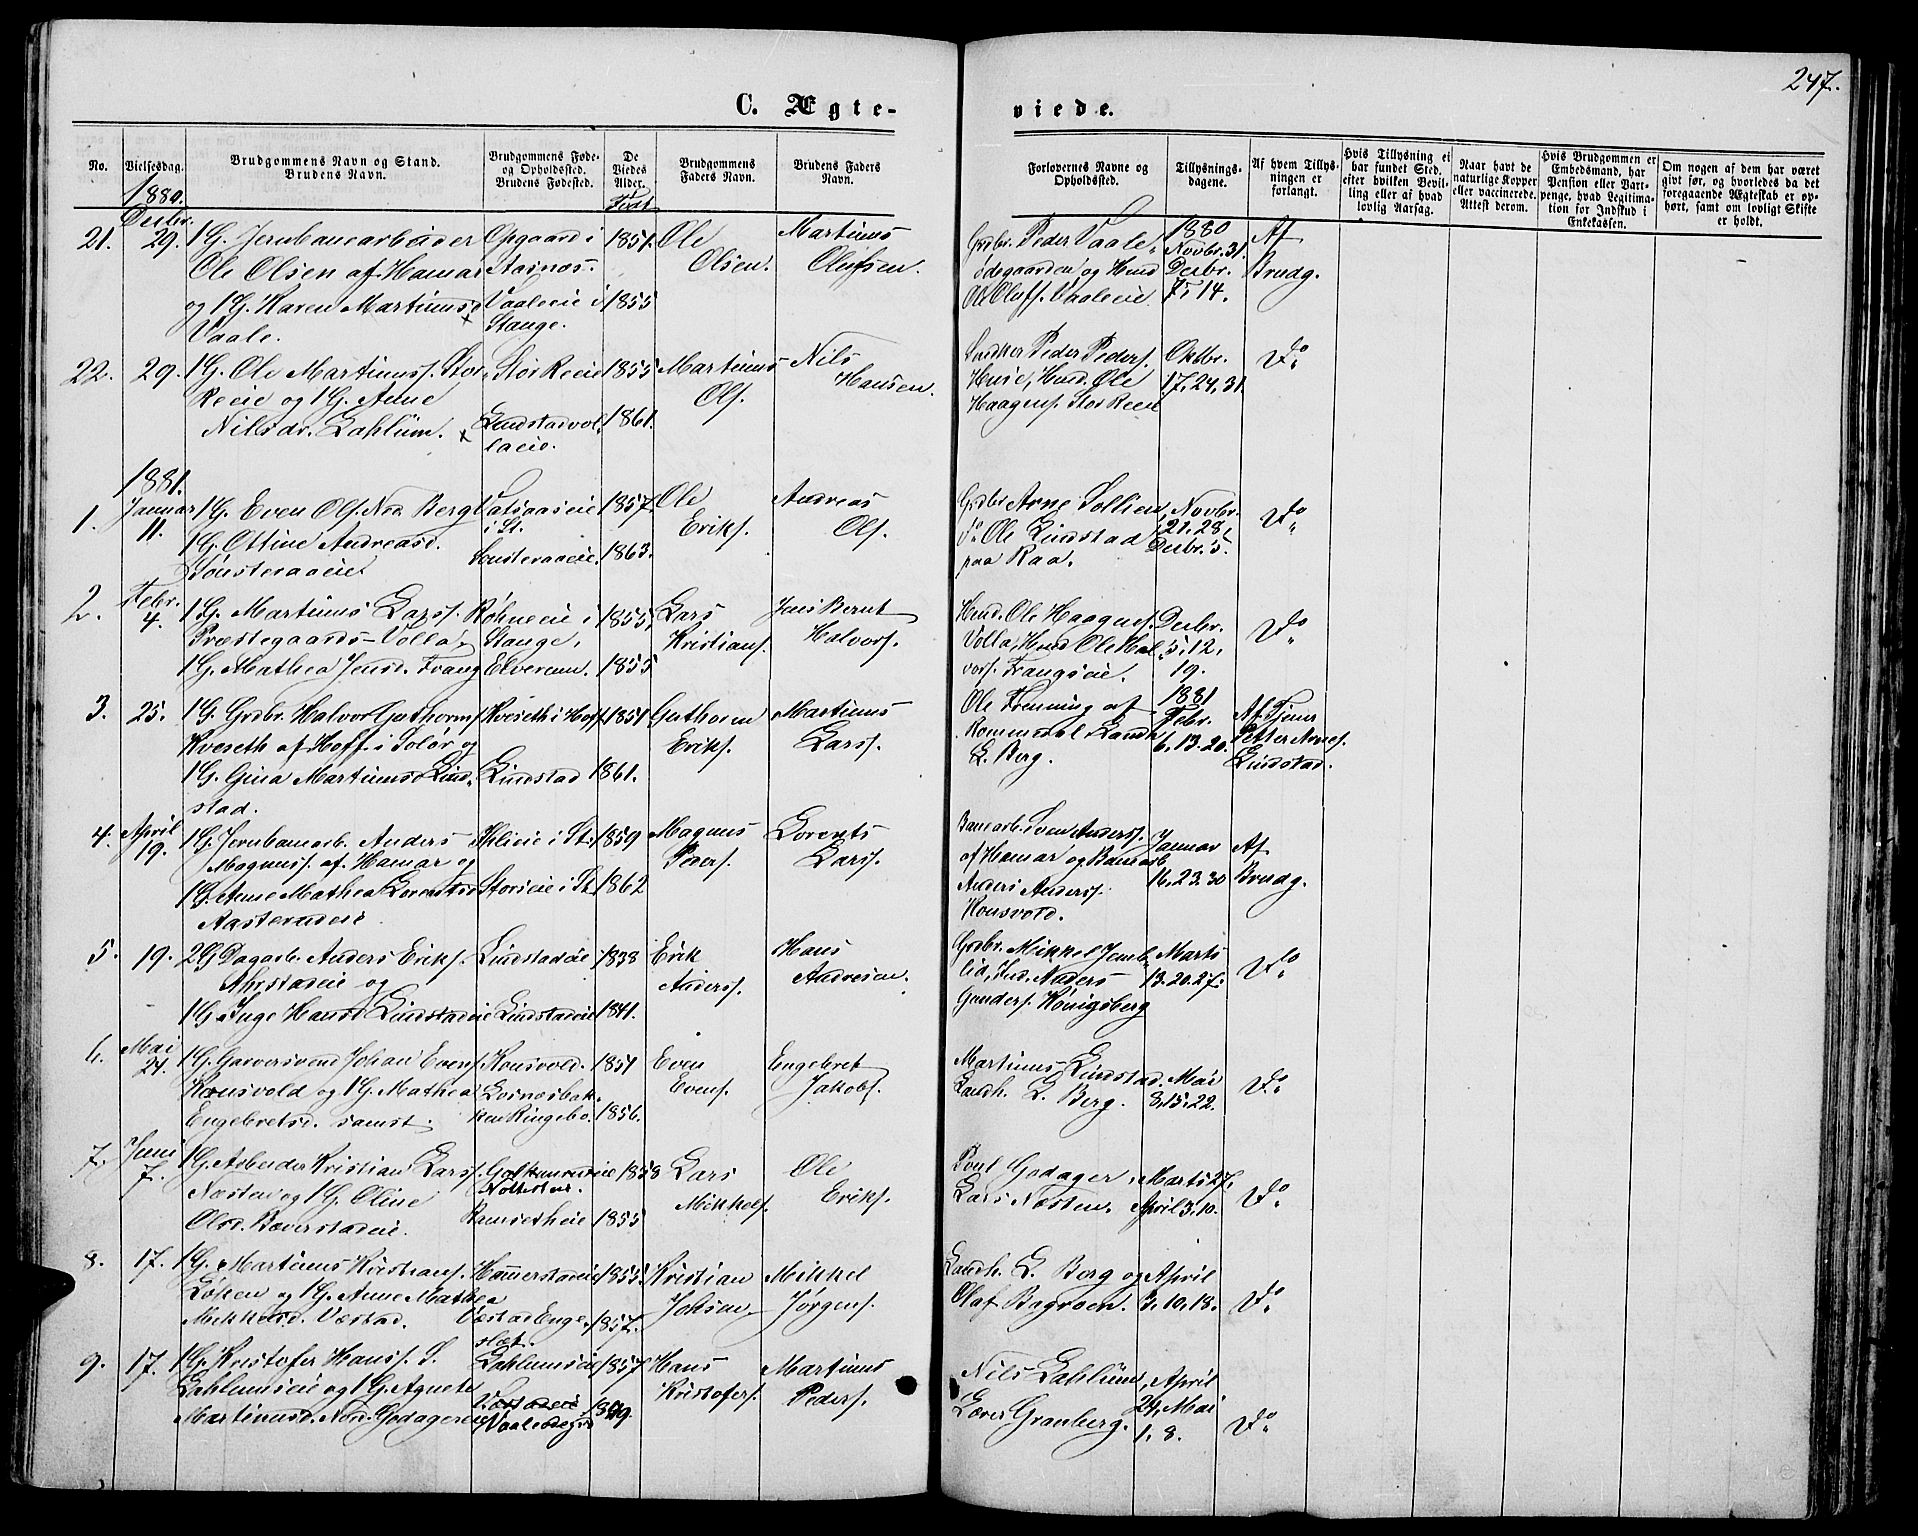 247.
C. Ægte-
viede.
No.
Vielsesdag.
Brudgommens Navn og Stand.
Brudens Navn.
Brudgommens Føde-
og Opholdssted.
Brudens Fødested.
De
Viedes
Alder.
Brudgommens
Faders Navn.
Brudens Faders
Navn.
Forlovernes Navne og
Opholdssted.
Tillysnings-
dagene.
Af hvem Tillys-
ningen er
forlangt.
Hvis Tillysning ei
har fundet Sted,
efter hvilken Bevil-
ling eller af hvad
lovlig Aarsag.
Naar havt de
naturlige Kopper
eller vaccinerede.
Attest derom.
Hvis Brudgommen er
Embedsmand, har
Pension eller Vart-
penge, hvad Legitima-
tion for Indskud i
Enkekassen.
Om nogen af dem har været
givt før, og hvorledes da det
foregaaende Ægteskab er op-
hørt, samt om lovligt Skifte
er holdt.
1880.
Decbr.
Født
21.
29.
1G. Jernbanearbeider
Ole Olsen af Hamar
og 1G. Karen Martinusd
Vaale.
Opgaard i
Aasnæs.
Vaaleeie i
Stange.
1851.
1855
Ole
Olsen.
Martinus
Olufsen.
Grdbr. Peder Vaale
ødegaarden og Husd
Ole Olufs. Vaaleeie.
1880
Novbr. 31.
Decbr.
7, 14.
Af
Brudg.
22.
29.
1G. Ole Martinuss. Stor
Reeie og 1G. Anne
Nilsdr. Lahlum.
Stor Reeie
Lindstadvol
laeie.
1855
1861.
Martinus
Ols.
Nils
Hansen.
Peder Peders.
Husd. Ole
Haagens. Stor Reeie
Oktbr.
17, 24, 31.
Do
1881.
1.
Januar
11.
1G. Even Ols. Nod. Berg
1G. Ottine Andreasd.
Sønsteraaeie.
i St.
Sønsteraaeie.
1857.
1863.
Ole
Eriks.
Andreas
Ols.
Grdbr Arne Sollien,
do Ole Lindstad
paa Raa.
Novbr.
21. 28.
Decbr. 5.
Do
2.
Febr.
4.
1G. Martinus Larss.
Præstegaards-Volla,
1G. Mathea Jensd. Frang
Røhneeie i
Stange,
Elverum.
1855
1855
Lars
Kristians.
Jens Bernt
Halvors.
Husd. Ole Haagens.
Volla, Husd Ole Hal
vors. Frangseie.
Decbr.
5, 12,
19.
Do
3.
25.
1G. Grdbr. Halvor Guthorms
Kveseth af Hoff i Solør og
1G. Gina Martinusd Lind
stad.
Kveseth i Hoff
Lindstad
1851.
1861.
Guthorm
Eriks.
Martinus
Larss.
Ole Frenning af
Rommedal Landh
L. Berg.
1881
Febr.
6. 13. 20.
Af Tjener
Petter Arnes.
Lindstad.
4.
April
19.
1G. Jernbanearb. Anders
Magnuss. af Hamar og
1G. Anne Mathea Lorentsd
Aasterudeie
i St.
Storeeie i St.
1859
1862
Magnus
Peders.
Lorents
Larss.
Banearb. Sven Anderss.
af Hamar og Banearb
Anders Anderss.
Konsvold.
Januar
16. 23. 30
Af
Brudg.
5.
19.
2G Dagarb. Anders Eriks.
Ahrstadeie og
1G Inge Hansd Lindstadeie
Lindstadeie
Lindstadeie
1838
1841.
Erik
Anderss.
Hans
Andresen.
Grdbr. Mikkel Jemb
lid, Ind. Anders
Gunders. Königsberg
Marts
13. 20. 27.
Do
6.
Mai
24.
1G. Garversvend Johan Evens
Konsvold og 1G. Mathea
Engebretsd. samst.
Konsvold.
Losnæsbak
ken Ringebo.
1851
1856.
Even
Evens.
Engebret
Jakobs.
Martinus Lindstad.
Landh. L. Berg.
Mai
8. 15. 22.
Do
7.
Juni
7.
1G. Arbeider Kristian Larss.
Næsten og 1G. Oline
Olsd. Bæverstadeie.
Ramsetheie
1858
1855
Lars
Mikkels.
Ole
Eriks.
Poul Godager,
Lars Næsten.
Marts 27.
April 3. 10.
Do
8.
17.
1G. Martinus Kristians.
Løken og 1G. Anne Mathea
Mikkelsd. Væstad.
Hamerstadeie
Væstad Enge-
slæt.
1855
1857.
Kristian
Johsen
Mikkel
Jørgens.
Landh. L. Berg og
Olaf Bagroen.
April
3. 10. 18.
Do
9.
17.
1G. Kristofer Hanss. S.
Lahlumseie og 1G. Agnete
Martinusd. Nord. Godagereie
Lahlumseie
Væstadeie
Vaaleødegrd
1857
1859.
Hans
Kristofers.
Martinus
Peders.
Nils Lahlum,
Granberg.
April
24, Mai
1. 8.
Do